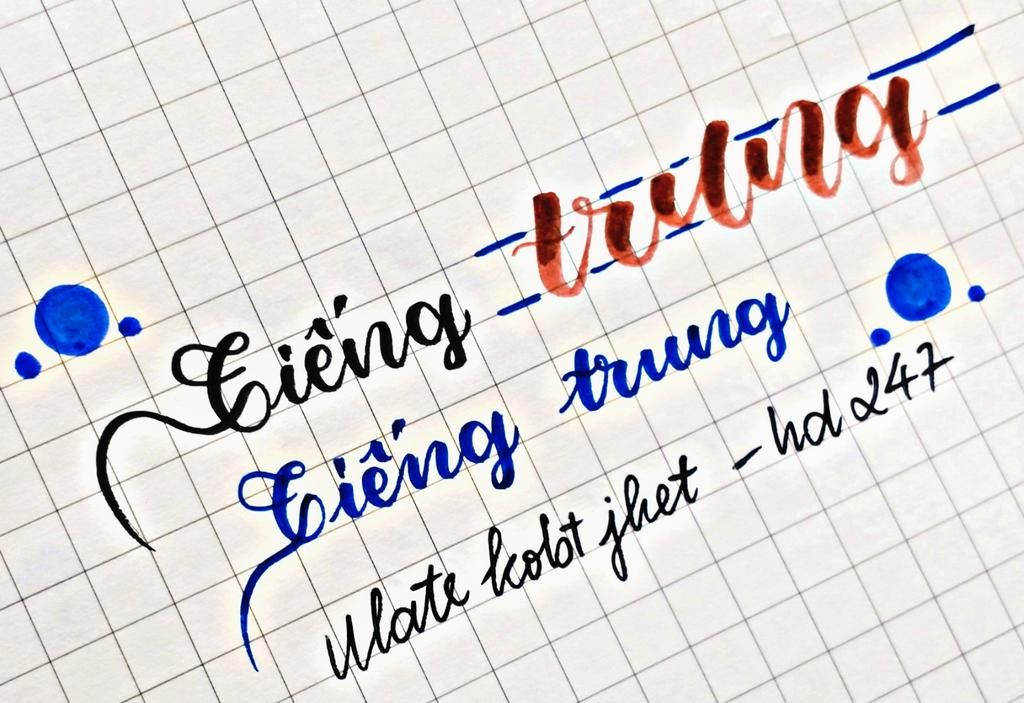 Tiếng trung
Tiếng trung
Ulate kobt jhet - hd 247